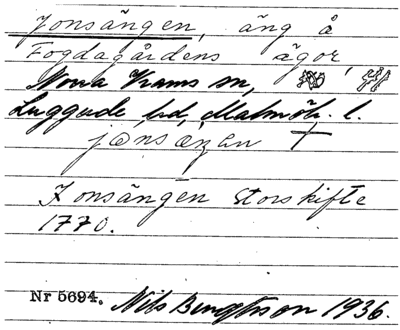 Jonsängen, äng å
Fogdagårdens ägor,
Norra Vrams sn,
Luggude hd, Malmöh. l.
Jonsängen Storskifte
1770.
Nr 5694. Nils Bengtsson 1936.